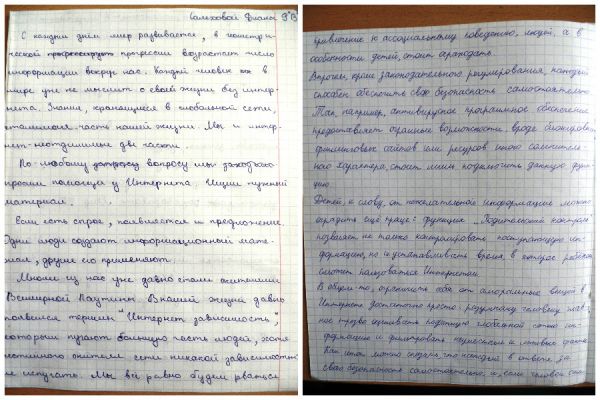 Салеховой Дианы 9"В"
С каждым днём мир развивается, в геометри-
ческой прогрессии возрастает число
информации вокруг нас. Каждый человек в
мире уже не мыслит о своей жизни без интер-
нета. Знания, хранящиеся в глобальной сети,
стали частью нашей жизни. Мы и интер-
нет-неотделимые две части.
По любому вопросу мы
просим помощи у Интернета. Ищем нужный
материал.
Если есть спрос, появляется и предложение.
Одни люди создают информационный мате-
риал, другие его применяют.
Многие из нас уже давно стали жителями
Всемирной Паутины. В нашей жизни давно
появился термин "Интернет зависимость",
которым пугают большую часть людей, хотя
истинного жителя сети никакой зависимостью
не испугать. Мы всё равно будем рваться
привлечение к ассоциальному поведению, людей, а в
особенности детей, стоит оградить.
Впрочем, кроме законодательного регулирования, каждый
способен обеспечить свою безопасность самостоятельно.
Так, например, антивирусное программное обеспечение
предоставляет огромные возможности, вроде блокировки
фишинговых сайтов или ресурсов иного
характера, стоит лишь подключить данную функ-
цию.
Детей, к слову, от нежелательной информации можно
оградить ещё проще: функция "Родительский контроль"
позволяет не только контролировать поступающую ин-
формацию, но и устанавливать время, в которое ребёнок
сможет пользоваться Интернетом.
В общем-то, оградить себя от аморальных вещей в
Интернете достаточно просто: разумному человеку
трезво оценивать глобальной сетью ин-
формацию и фильтровать
Как итог можно сказать, что каждый в ответе за
свою безопасность самостоятельно и, если человек сам